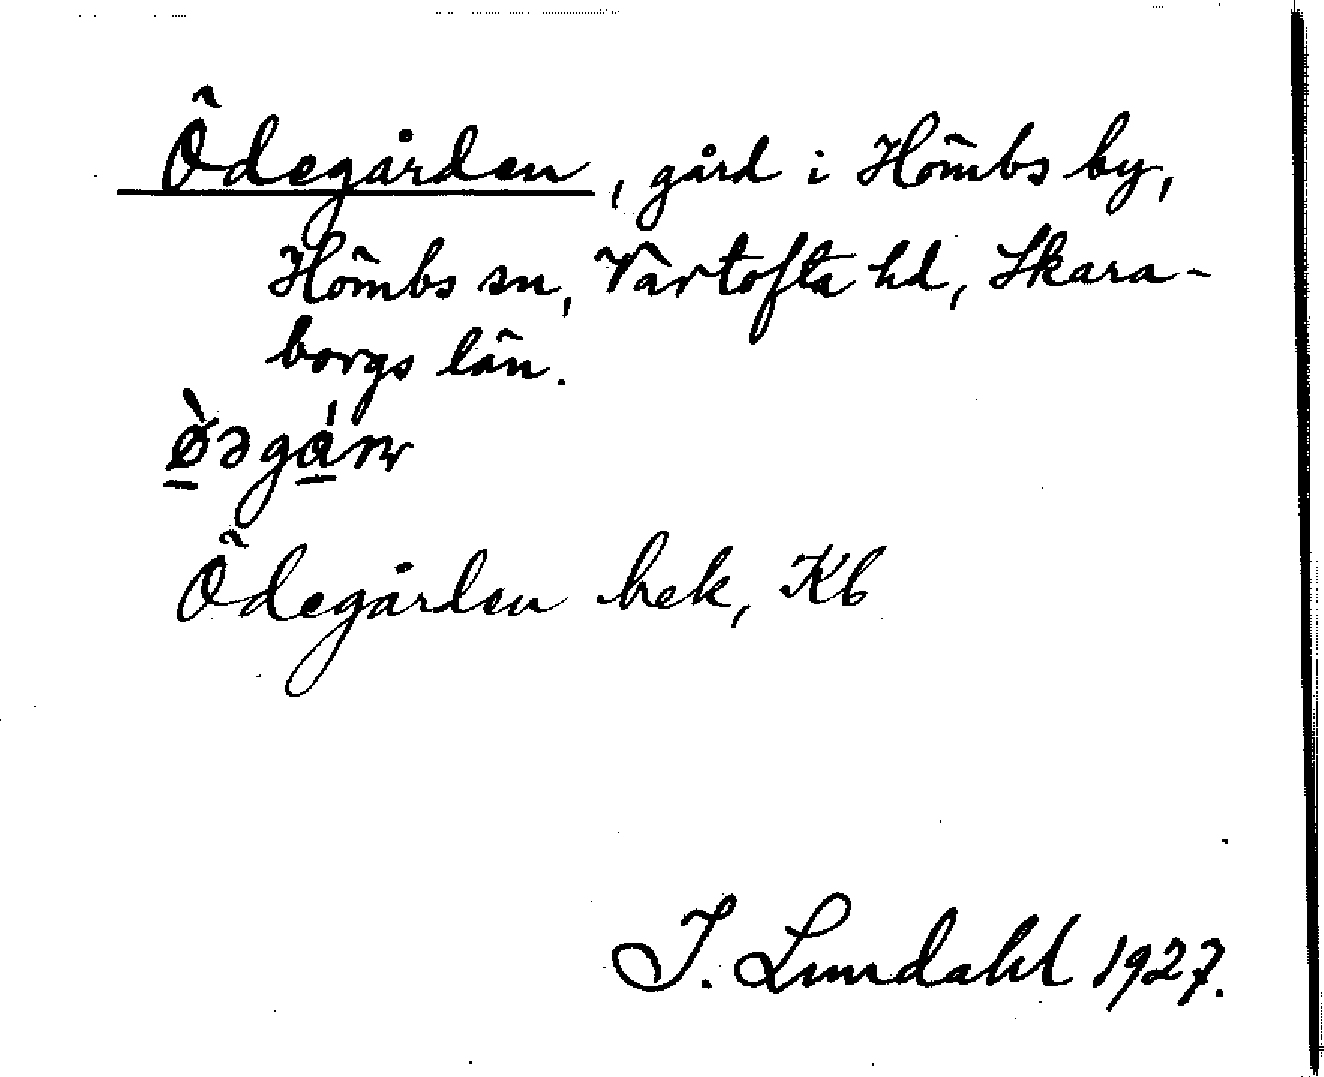 Ödegården, gård i Hömbs by,
Hömbs sn, Vartofta hd, Skara-
borgs län.
Ödegården bek, Kb
I. Lundahl 1927.